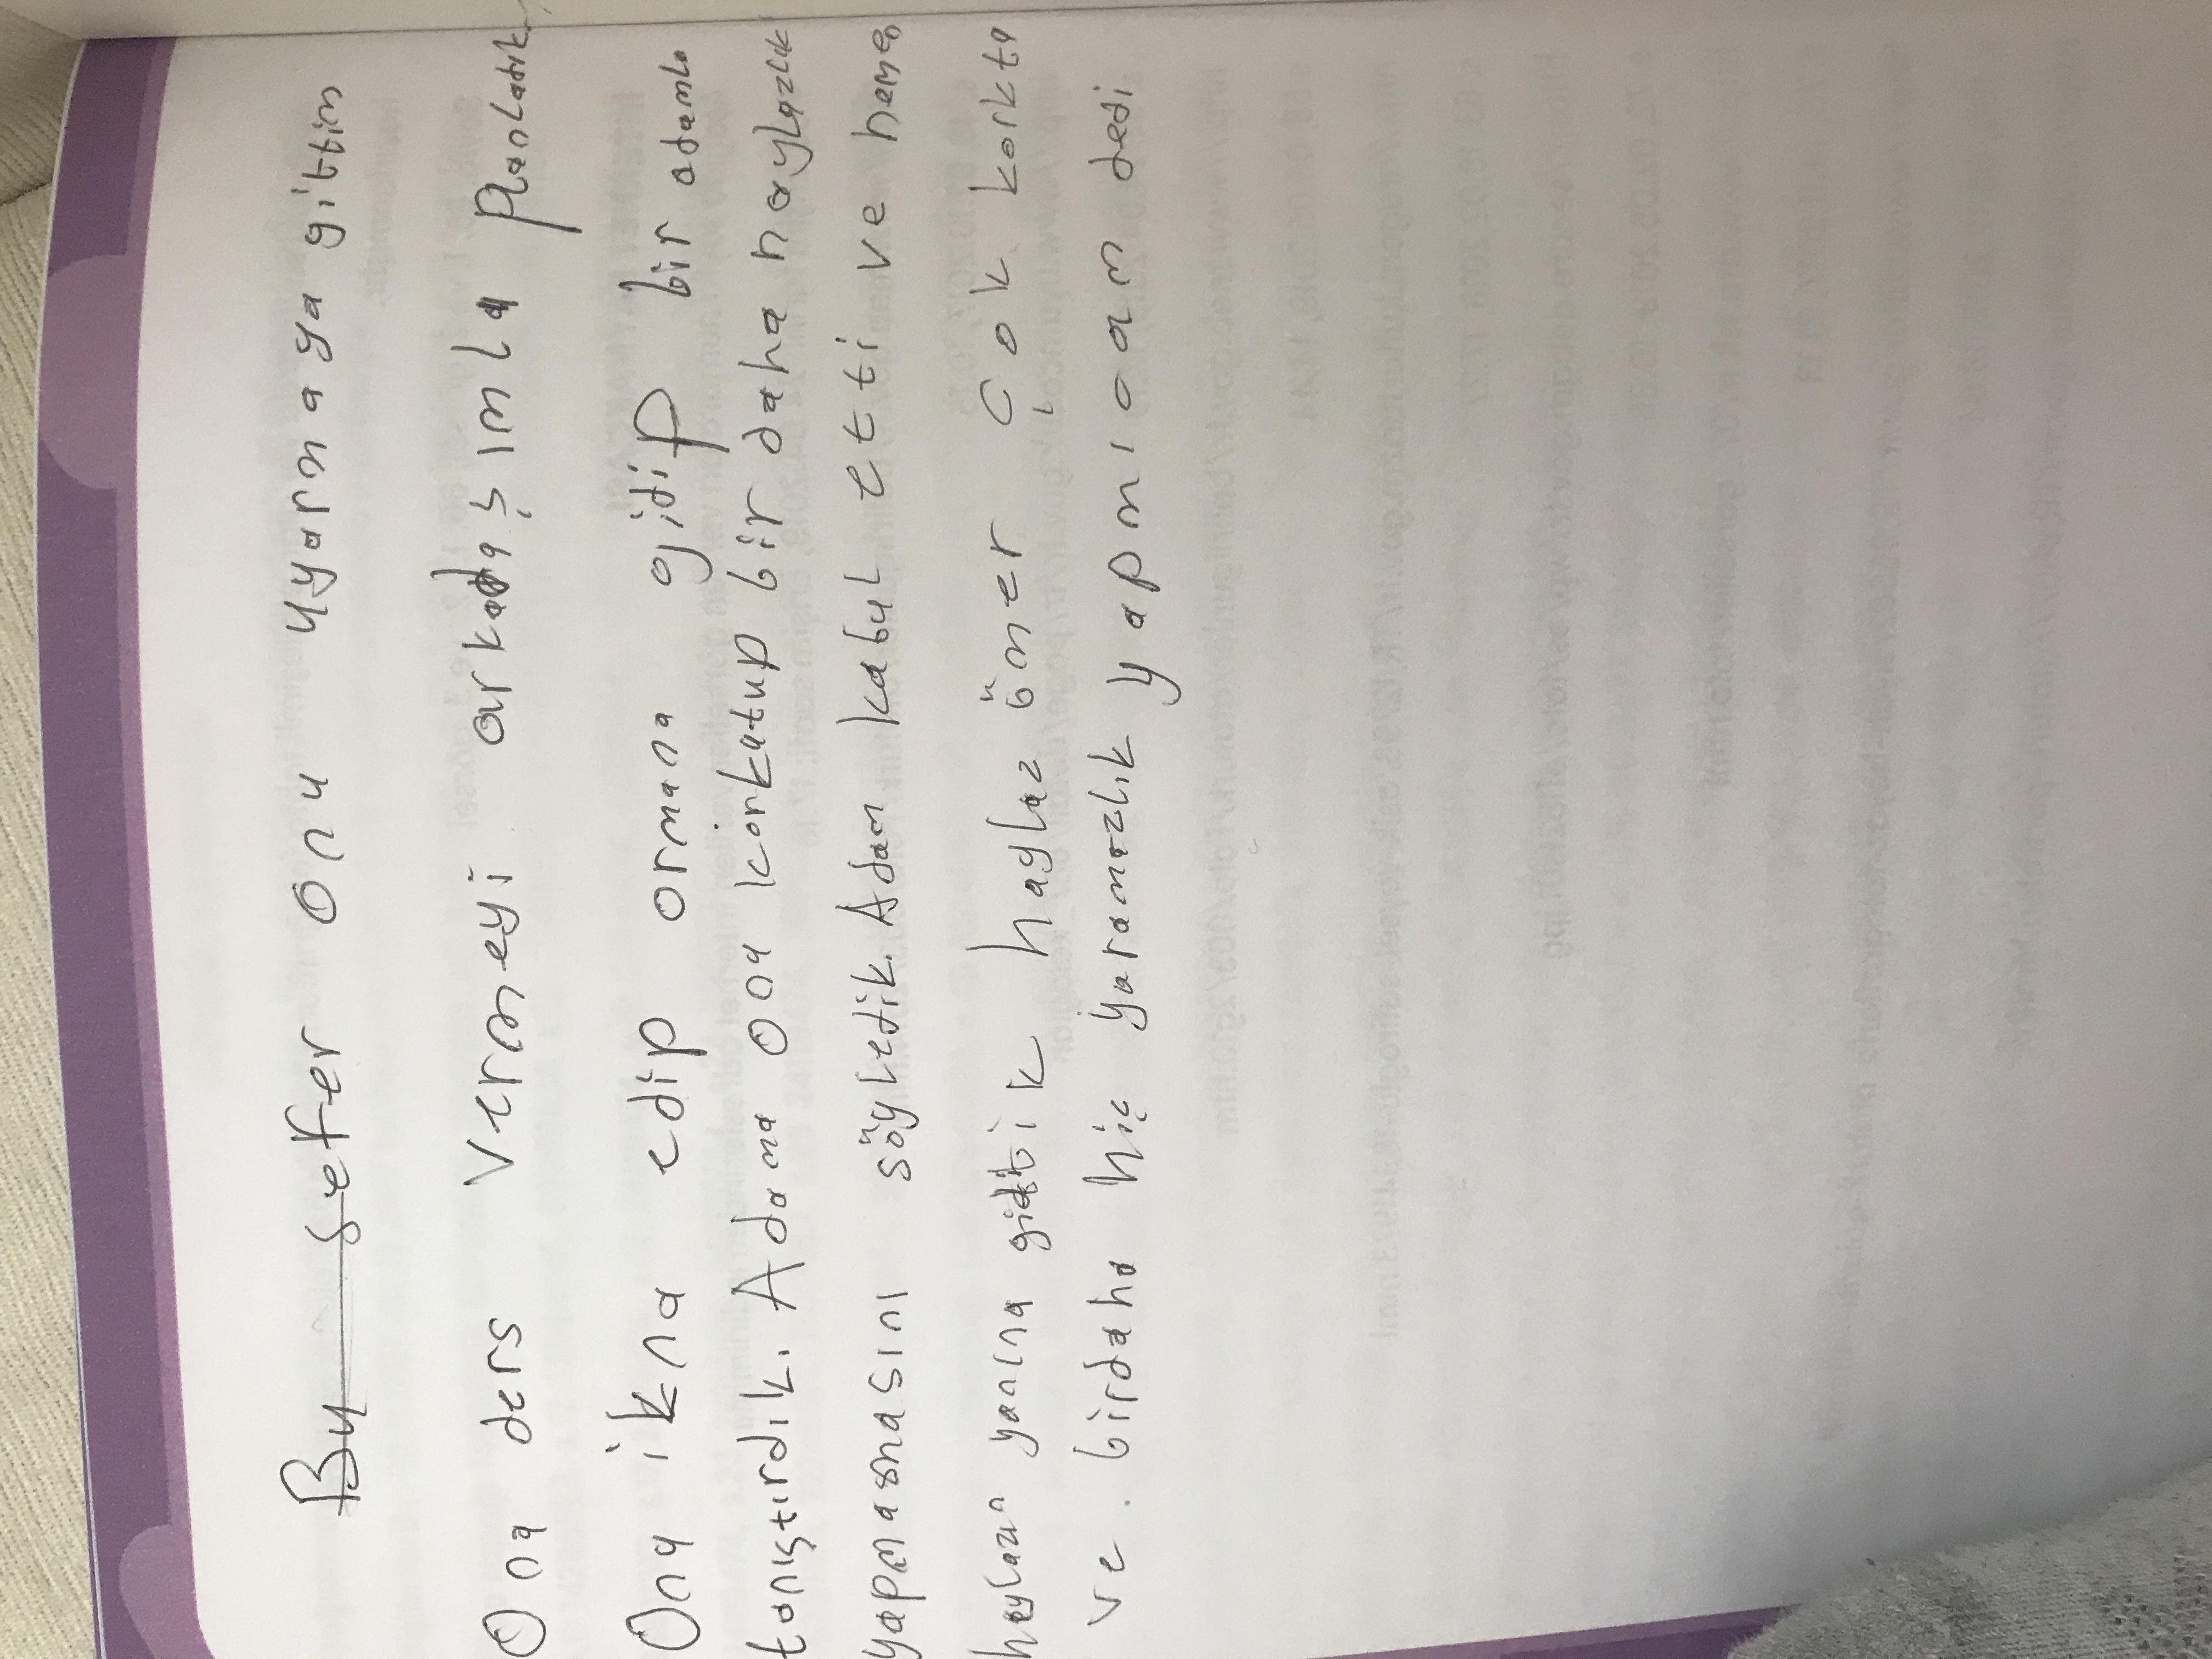 Bu sefer onu uyarmaya gittim
Ona ders vermeyi arkadaşımla planladık
Ona ikna edip ormana gidip bir adamla
tanıştırdık. Adama ona korkatup bir daha haylazlık
yapmamasını söyledik. Adam kabul etti ve hemen
haylazın yanına gittik haylaz ömer çok korktu
ve. birdaha hiç yaramazlık yapmıcam dedi